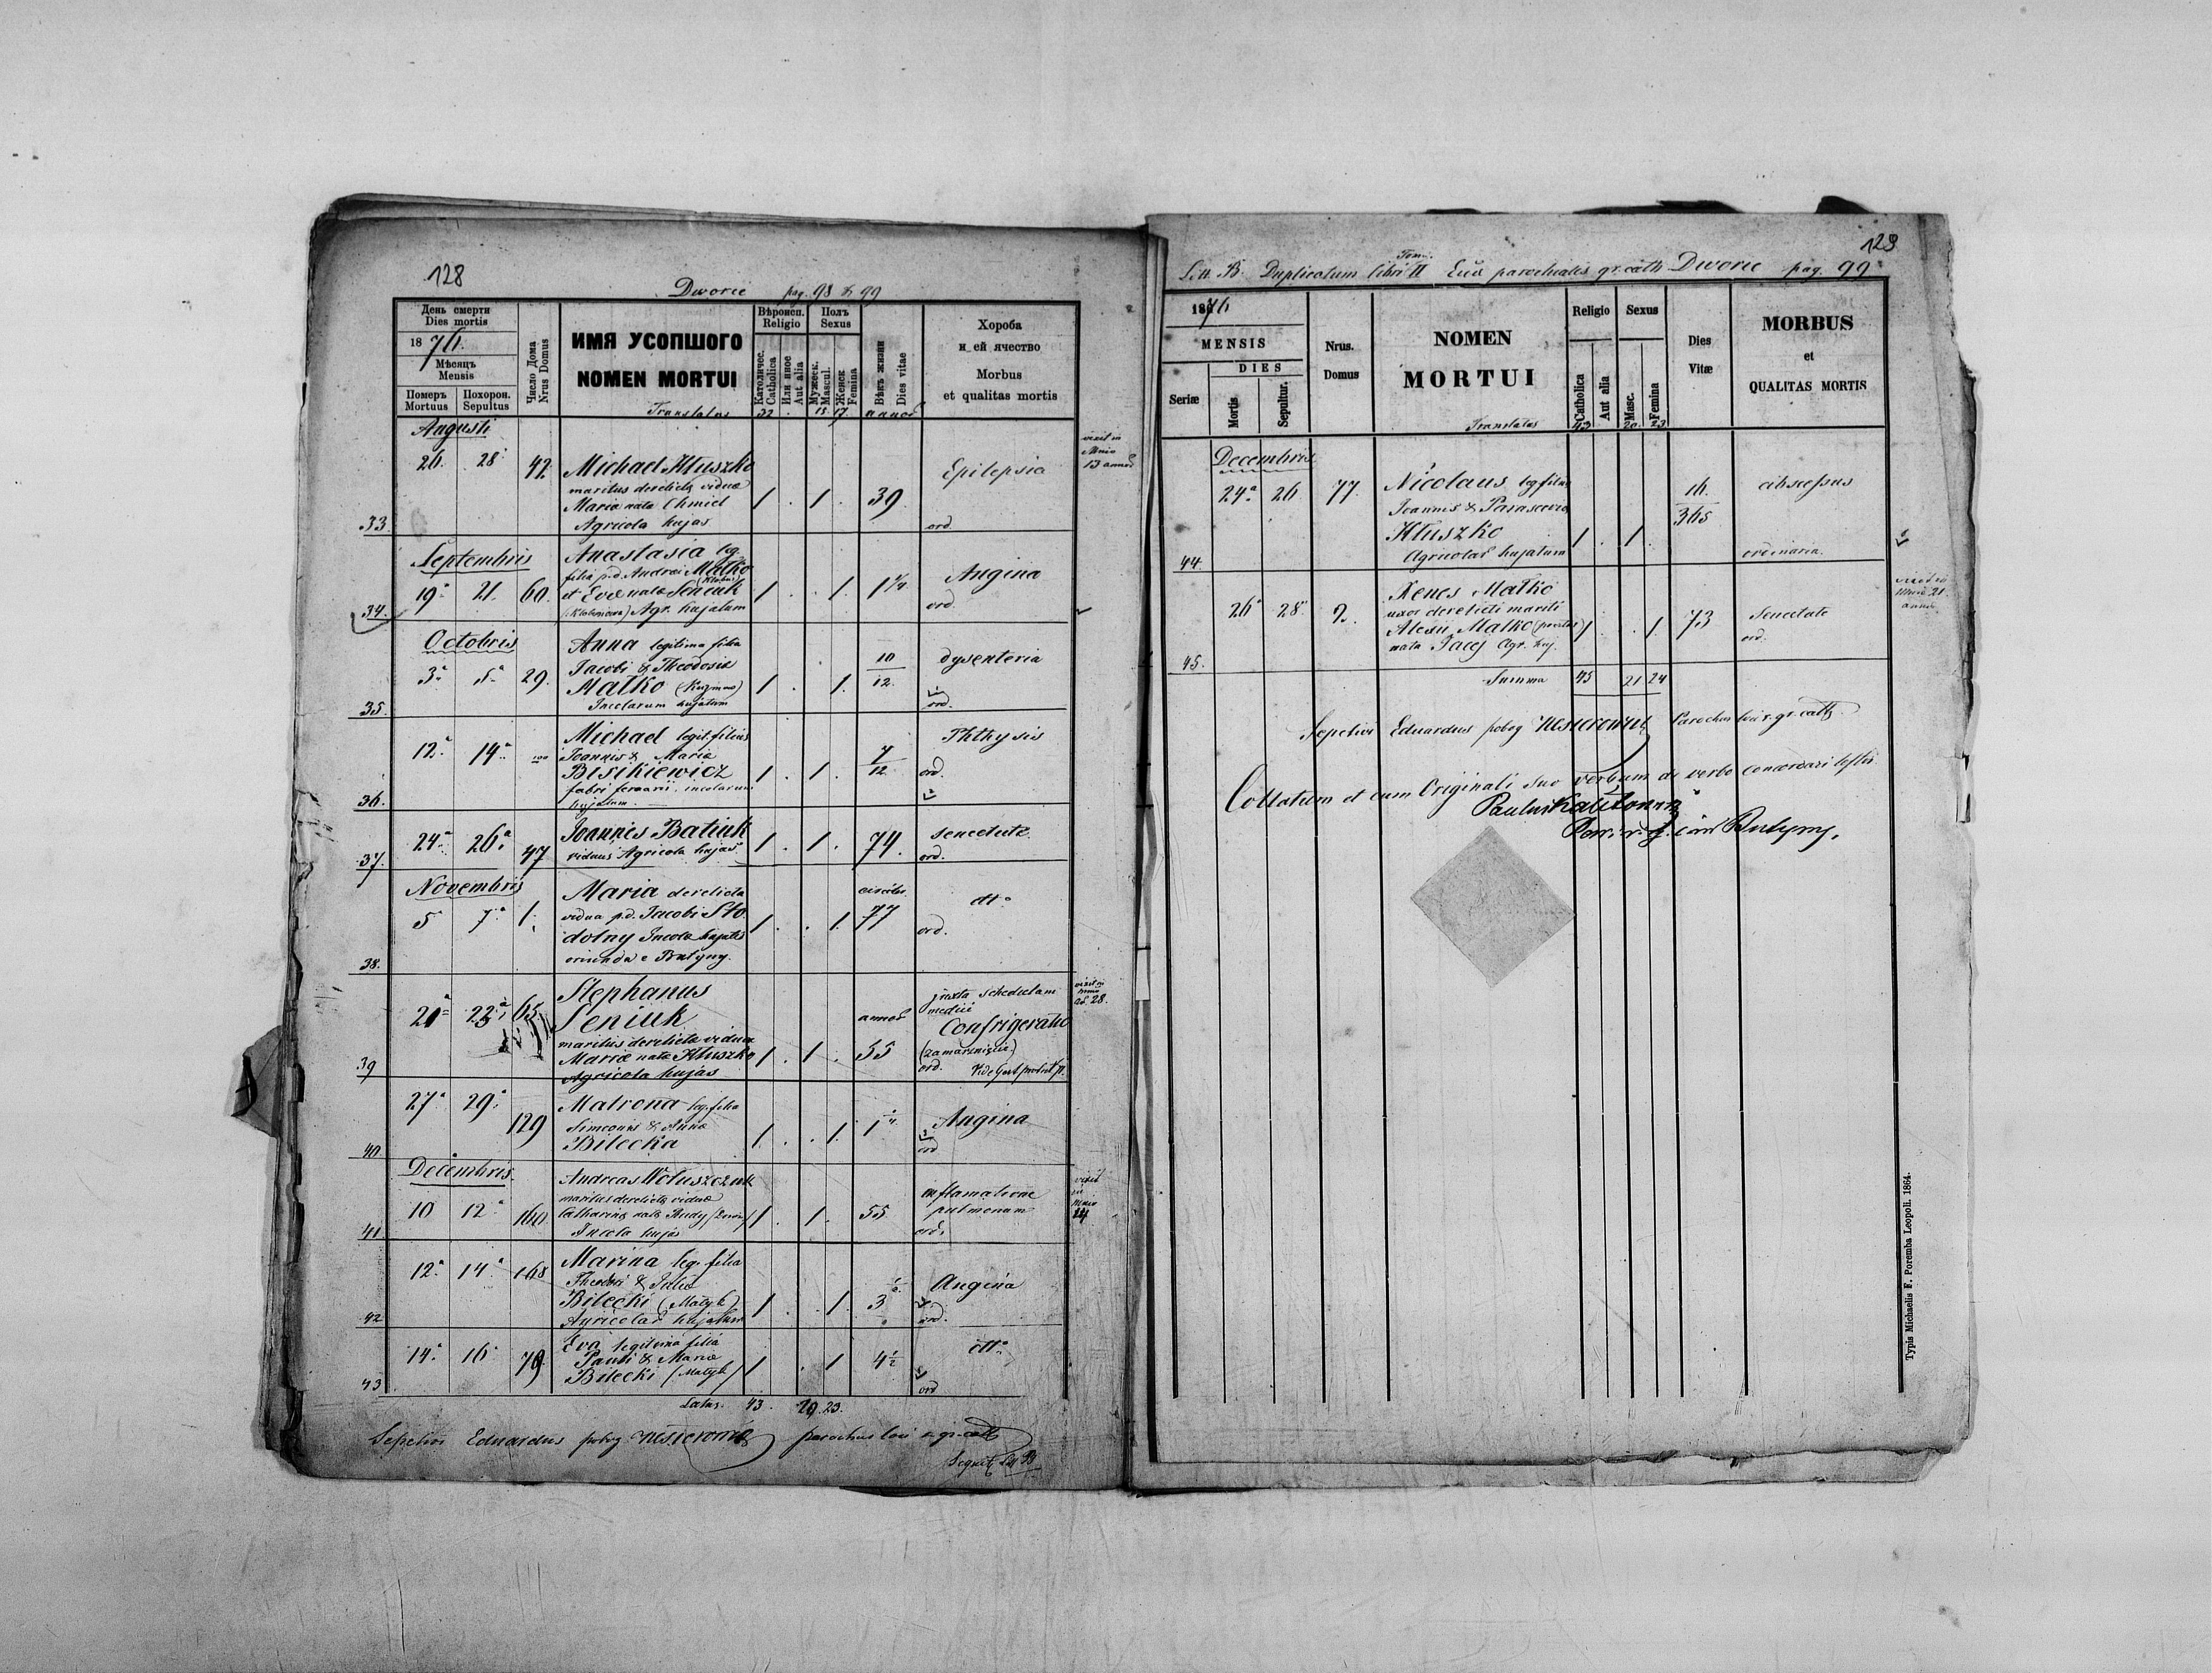 128
Dworce pag. 98 & 99
День смерти
Dies mortis
1876.
Мѣсяцъ
Mensis
Померъ
Mortuus
Похорон.
Sepultus
Число Дома
Nrus Domus
ИМЯ УСОПШОГО
NOMEN MORTUI
Translatus
Вѣроисп.
Religio
Католичес.
Catholica
Или иное
Aut alia
32
Полъ
Sexus
Мужеск.
Mascul.
Женск
Femina
15 17
Вѣкъ жизни
Dies vitae
annos
Хороба
и ей ячество
Morbus
et qualitas mortis
Augusti
33. 26. 28 42 Michael Hłuszko
maritus derelictæ viduæ
Maria nata Chmiel
Agricola hujas
1 . 1 . 39
Epilepsia
ord
vixit in
Mnio
13 annos
Septembris
34. 19 21. 60. Anastasia leg.
filia p.d. Andreæ Małko
et Evæ nata Seniuk
Agr. hujatum
1 . . 1. 1 1/4
Angina
ord.
Octobris
35. 3 5 29. Anna legitima filia
Jacobi & Theodosiæ
Małko (Kuzmow)
Incolarum hujatum
1 . 1. 10/12.
dysenteria
ord.
36. 12. 14. Michael legit. filius
Joannis & Maria
Bisikiewicz
fabri ferarii. incolarum
hujatum.
1 . 1 . 7/12
Phthysis
ord.
37. 24. 26. 47 Joannes Batiuk
viduus Agricola hujas
1 . 1 . 74.
senectute
ord.
Novembris
38. 5 7 1. Maria derelicta
vidua p.d. Jacobi Sto
dolny Incola hujatis
oriunda e Butyny.
1 . . 1. 77
dto
ord.
39 21 23 65. Stephanus
Seniuk
maritus derelictæ viduæ
Mariæ nata Hłuszko
Agricola hujas
1 . 1 . annos 55
juxta schedulam
medici
Confrigeratio
(zamarznięcie)
ord.
vixit in
Mnio
28.
40 27 29. 129 Matrona leg. filia
Simeonis & Annæ
Bilecka
1 . . 1. 1 1/4
Angina
ord
Decembris.
41 10 12 160 Andreas Wołuszczuk
maritus derelictæ viduæ
Catharinæ natæ Hudy
Incola hujas
1 . 1 . 55
inflamatione
pulmonum
ord.
vixit
in
Mnio
24
42 12. 14. 168 Marina leg. filia
Theodori & Julia
Bilecki (Matyk)
Agricolar hujatum
1 . . 1. 3
Angina
ord.
43 14. 16 79. Eva legitima filia
Pauli & Mariæ
Bilecki (Matyk)
1 . 1 4 1/2
dtto
ord
Latus. 43. 20. 23.
Sepelivi Eduardus pobog Nesterowicz parochus loci r. gr. cath
Sequit Lit B
129
Litt. B. Duplicatum libri Tomi II Eccl parochialis gr. cath Dworce pag. 99
1876
MENSIS
DIES
Seriæ
Mortis
Sepultur.
Nrus.
Domus
NOMEN
MORTUI
Translatus
Religio
Catholica
Aut alia
43
Sexus
Masc.
Femina
20. 23
Dies
Vitæ
MORBUS
et
QUALITAS MORTIS
Decembris
44 24 26 77 Nicolaus leg filius
Joannis & Parascevia
Hłuszko
Agricolar hujatum
1 . 1 . 16./365
abscessus
ordinaria.
45. 26 28 2. Xenes Małko
uxor derelicti mariti
Alexii Małko
nata Jacej Agr. huj.
1 . . 1. 73
Senectute
ord.
vixit in
Mnio 21
annos
Summa 45 21 24
Sepelivi Eduardus pobog Nesterowicz Parochus loci r. gr. cath.
Collatum et cum Originali suo verbum de verbo concordari testor.
Typis Michaelis F. Poremba Leopoli. 1864.